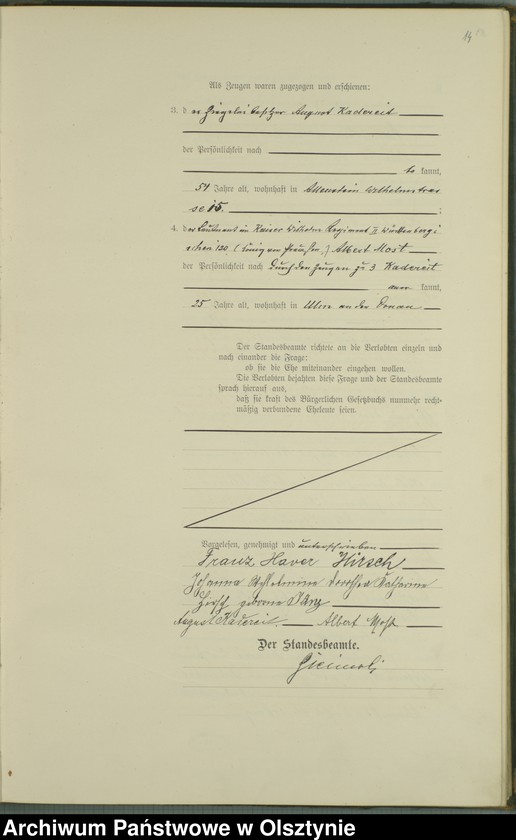 14
Als Zeugen waren zugezogen und erschienen:
3. der Ziegelei besitzer August Kadereit
der Persönlichkeit nach
be kannt,
54 Jahre alt, wohnhaft in Allenstein Wilhelmstras
se 15. ;
4. des Leutnant im Kaiser Wilhelm Regiment II Württembergi
schen 120 (König von Preußen,) Albert Most
der Persönlichkeit nach durch den Zeugen zu 3 Kadereit
kannt,
25 Jahre alt, wohnhaft in Ulm an der Donau
Der Standesbeamte richtete an die Verlobten einzeln und
nach einander die Frage:
ob sie die Ehe miteinander eingehen wollen.
Die Verlobten bejahten diese Frage und der Standesbeamte
sprach hierauf aus,
daß sie kraft des Bürgerlichen Gesetzbuchs nunmehr recht-
mäßig verbundene Eheleute seien.
Vorgelesen, genehmigt und unterschrieben
Franz Xaver Hirsch
Johanna Dorothea Katharina
Hirsch geborene
August Kadereit Albert Most
Der Standesbeamte.
Archiwum Państwowe w Olsztynie